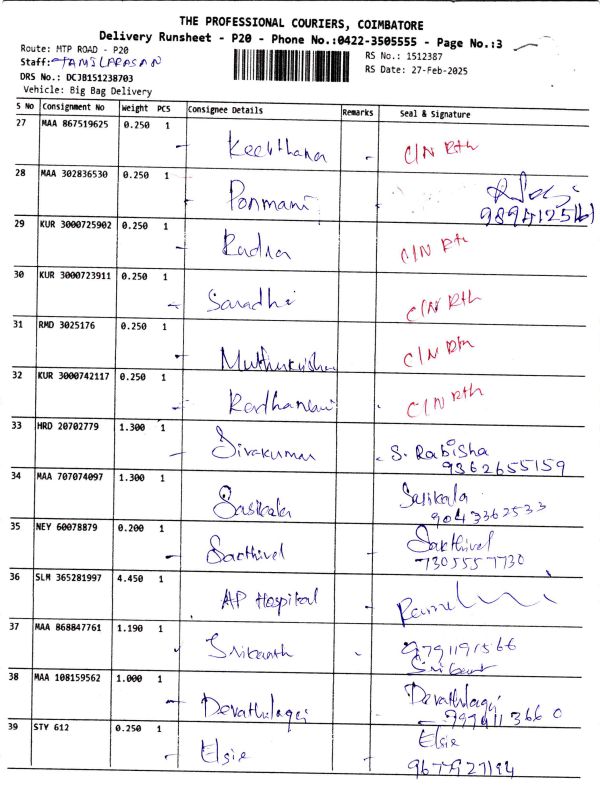 THE PROFESSIONAL COURIERS, COIMBATORE
Delivery Runsheet - P20 - Phone No.:0422-3505555 - Page No.:3
Route: MTP ROAD - P20
RS No.: 1512387
Staff: TAMILARASAN
RS Date: 27-Feb-2025
DRS No.: DCJB151238703
Vehicle: Big Bag Delivery
S No Consignment No Weight PCS Consignee Details Remarks Seal & Signature
27 MAA 867519625 0.250 1 Keerthana C/N Rth
28 MAA 302836530 0.250 1 Ponmani
29 KUR 3000725902 0.250 1 Rudra C/N Rth
30 KUR 3000723911 0.250 1 Saradhi C/N Rth
31 RMD 3025176 0.250 1 Muthukrishna C/N Rth
32 KUR 3000742117 0.250 1 Radhamani C/N Rth
33 HRD 20702779 1.300 1 Sivakumar S. Rabisha
9362655159
34 MAA 707074097 1.300 1 Sasikala Sasikala
9043362533
35 NEY 60078879 0.200 1 Sakthivel Sakthivel
7305557730
36 SLM 365281997 4.450 1 AP Hospital
37 MAA 868847761 1.190 1 Srikanth 9791191566
Srikant
38 MAA 108159562 1.000 1 Devathulagi Devathulagi
39 STY 612 0.250 1 Elsie Elsie